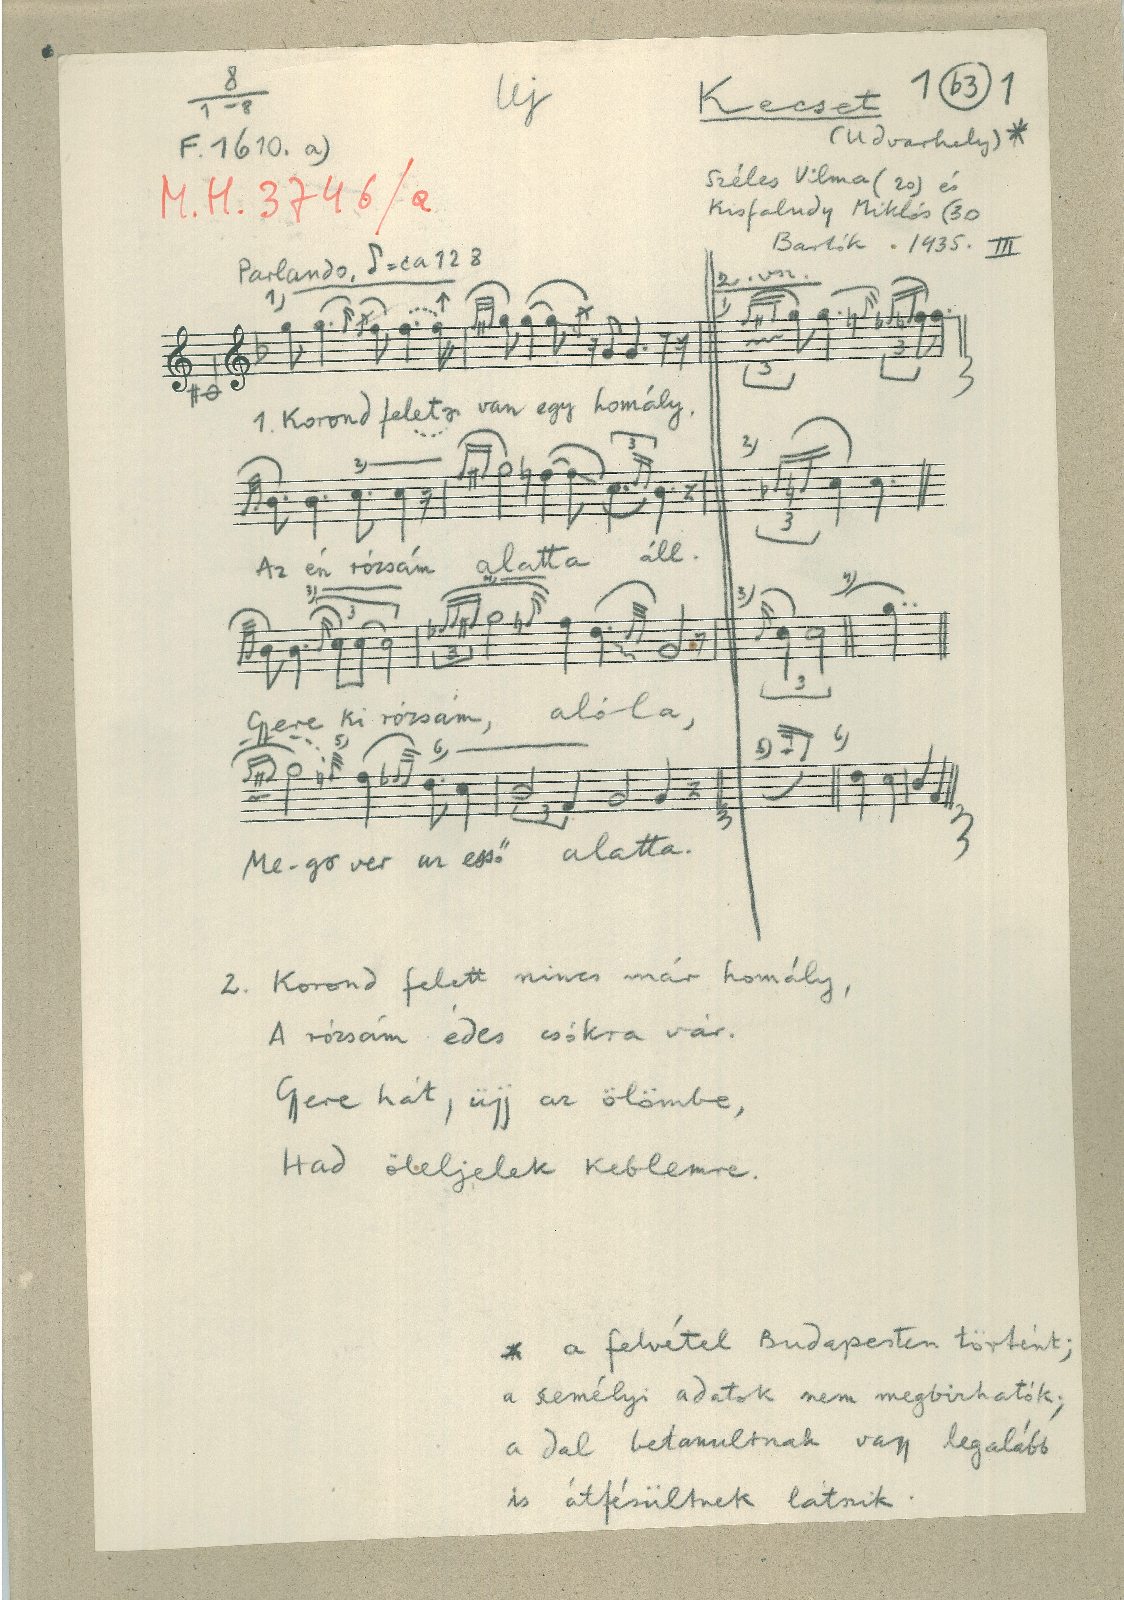 8
1 - 8
Uj
Kecset 1 (b3) 1
(Udvarhely)*
F. 1610. a)
M.H. 3746/a
Széles Vilma (20) és
Kisfaludy Miklós (30
Bartók . 1935. III
Parlando, ♪=ca 128
1) 2. vsz. 1)
3 3
1. Korond felett van egy homály,
2) 3 2)
3
Az én rózsám alatta áll.
3) 3 4) 3) 4)
3 3
Gere ki rózsám, alóla,
5) 6) 5) 6)
3
Me-gs ver az eső alatta.
2. Korond felett nincs már homály,
A rózsám édes csókra vár.
Gere hát, üjj az ölömbe,
Had öleljelek keblemre.
* a felvétel Budapesten történt;
a személyi adatok nem megbizhatók;
a dal betanultnak vagy legalább
is átfésültnek látszik.